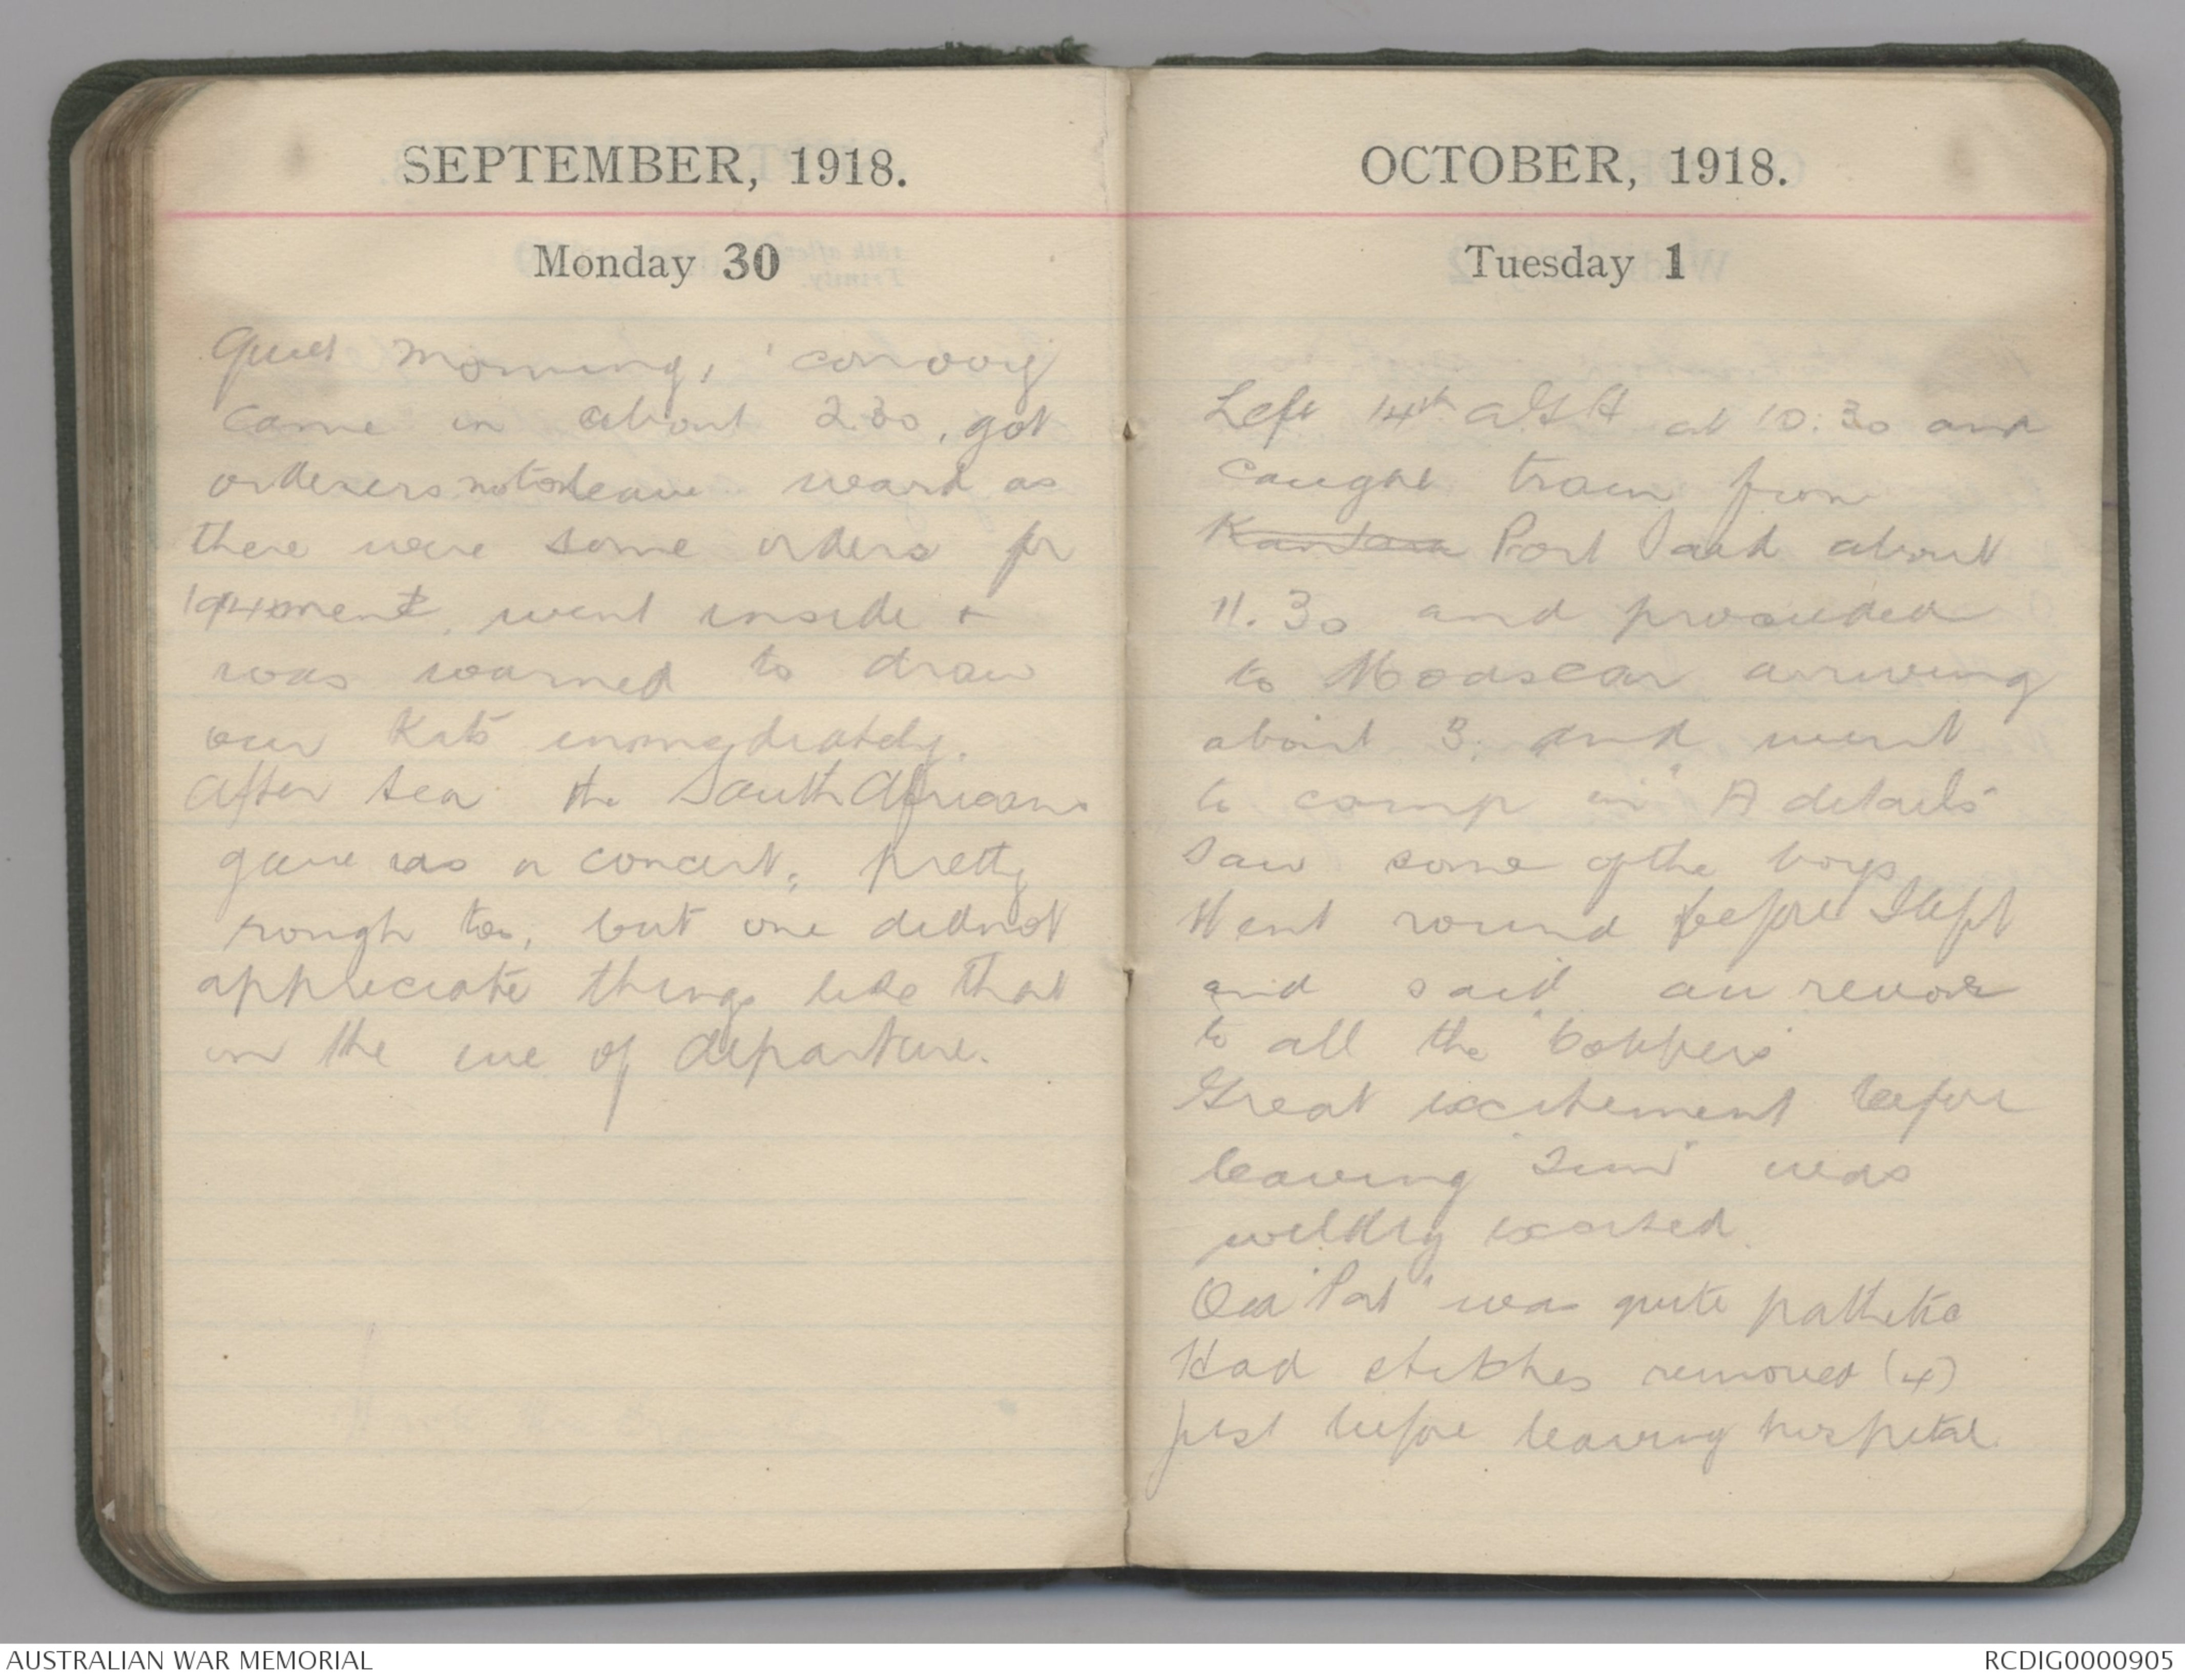 SEPTEMBER, 1918.
Monday 30
Quiet morning, convoy
came in about 2.30, got
orderers not to leave ward as
there were some orders for
1914 men, went inside +
was warned to draw
our kits immediately.
After tea the South Africans
gave us a concert, pretty
rough too, but one didnot
appreciate things like that
on the eve of departure.
OCTOBER, 1918.
Tuesday 1
Left 14th AGH at 10:30 and
caught train from
Kantara Port Said about
11.30 and proceeded
to Moascar arriving
about 3. and went
to camp in "A details"
Saw some of the boys
Went round before I left
and said au revoir
to all the
Great excitement before
leaving was
wildly excited.
"Pat" was quite pathetic
Had stitches removed (4)
just before leaving hospital.
AUSTRALIAN WAR MEMORIAL
RCDIG0000905